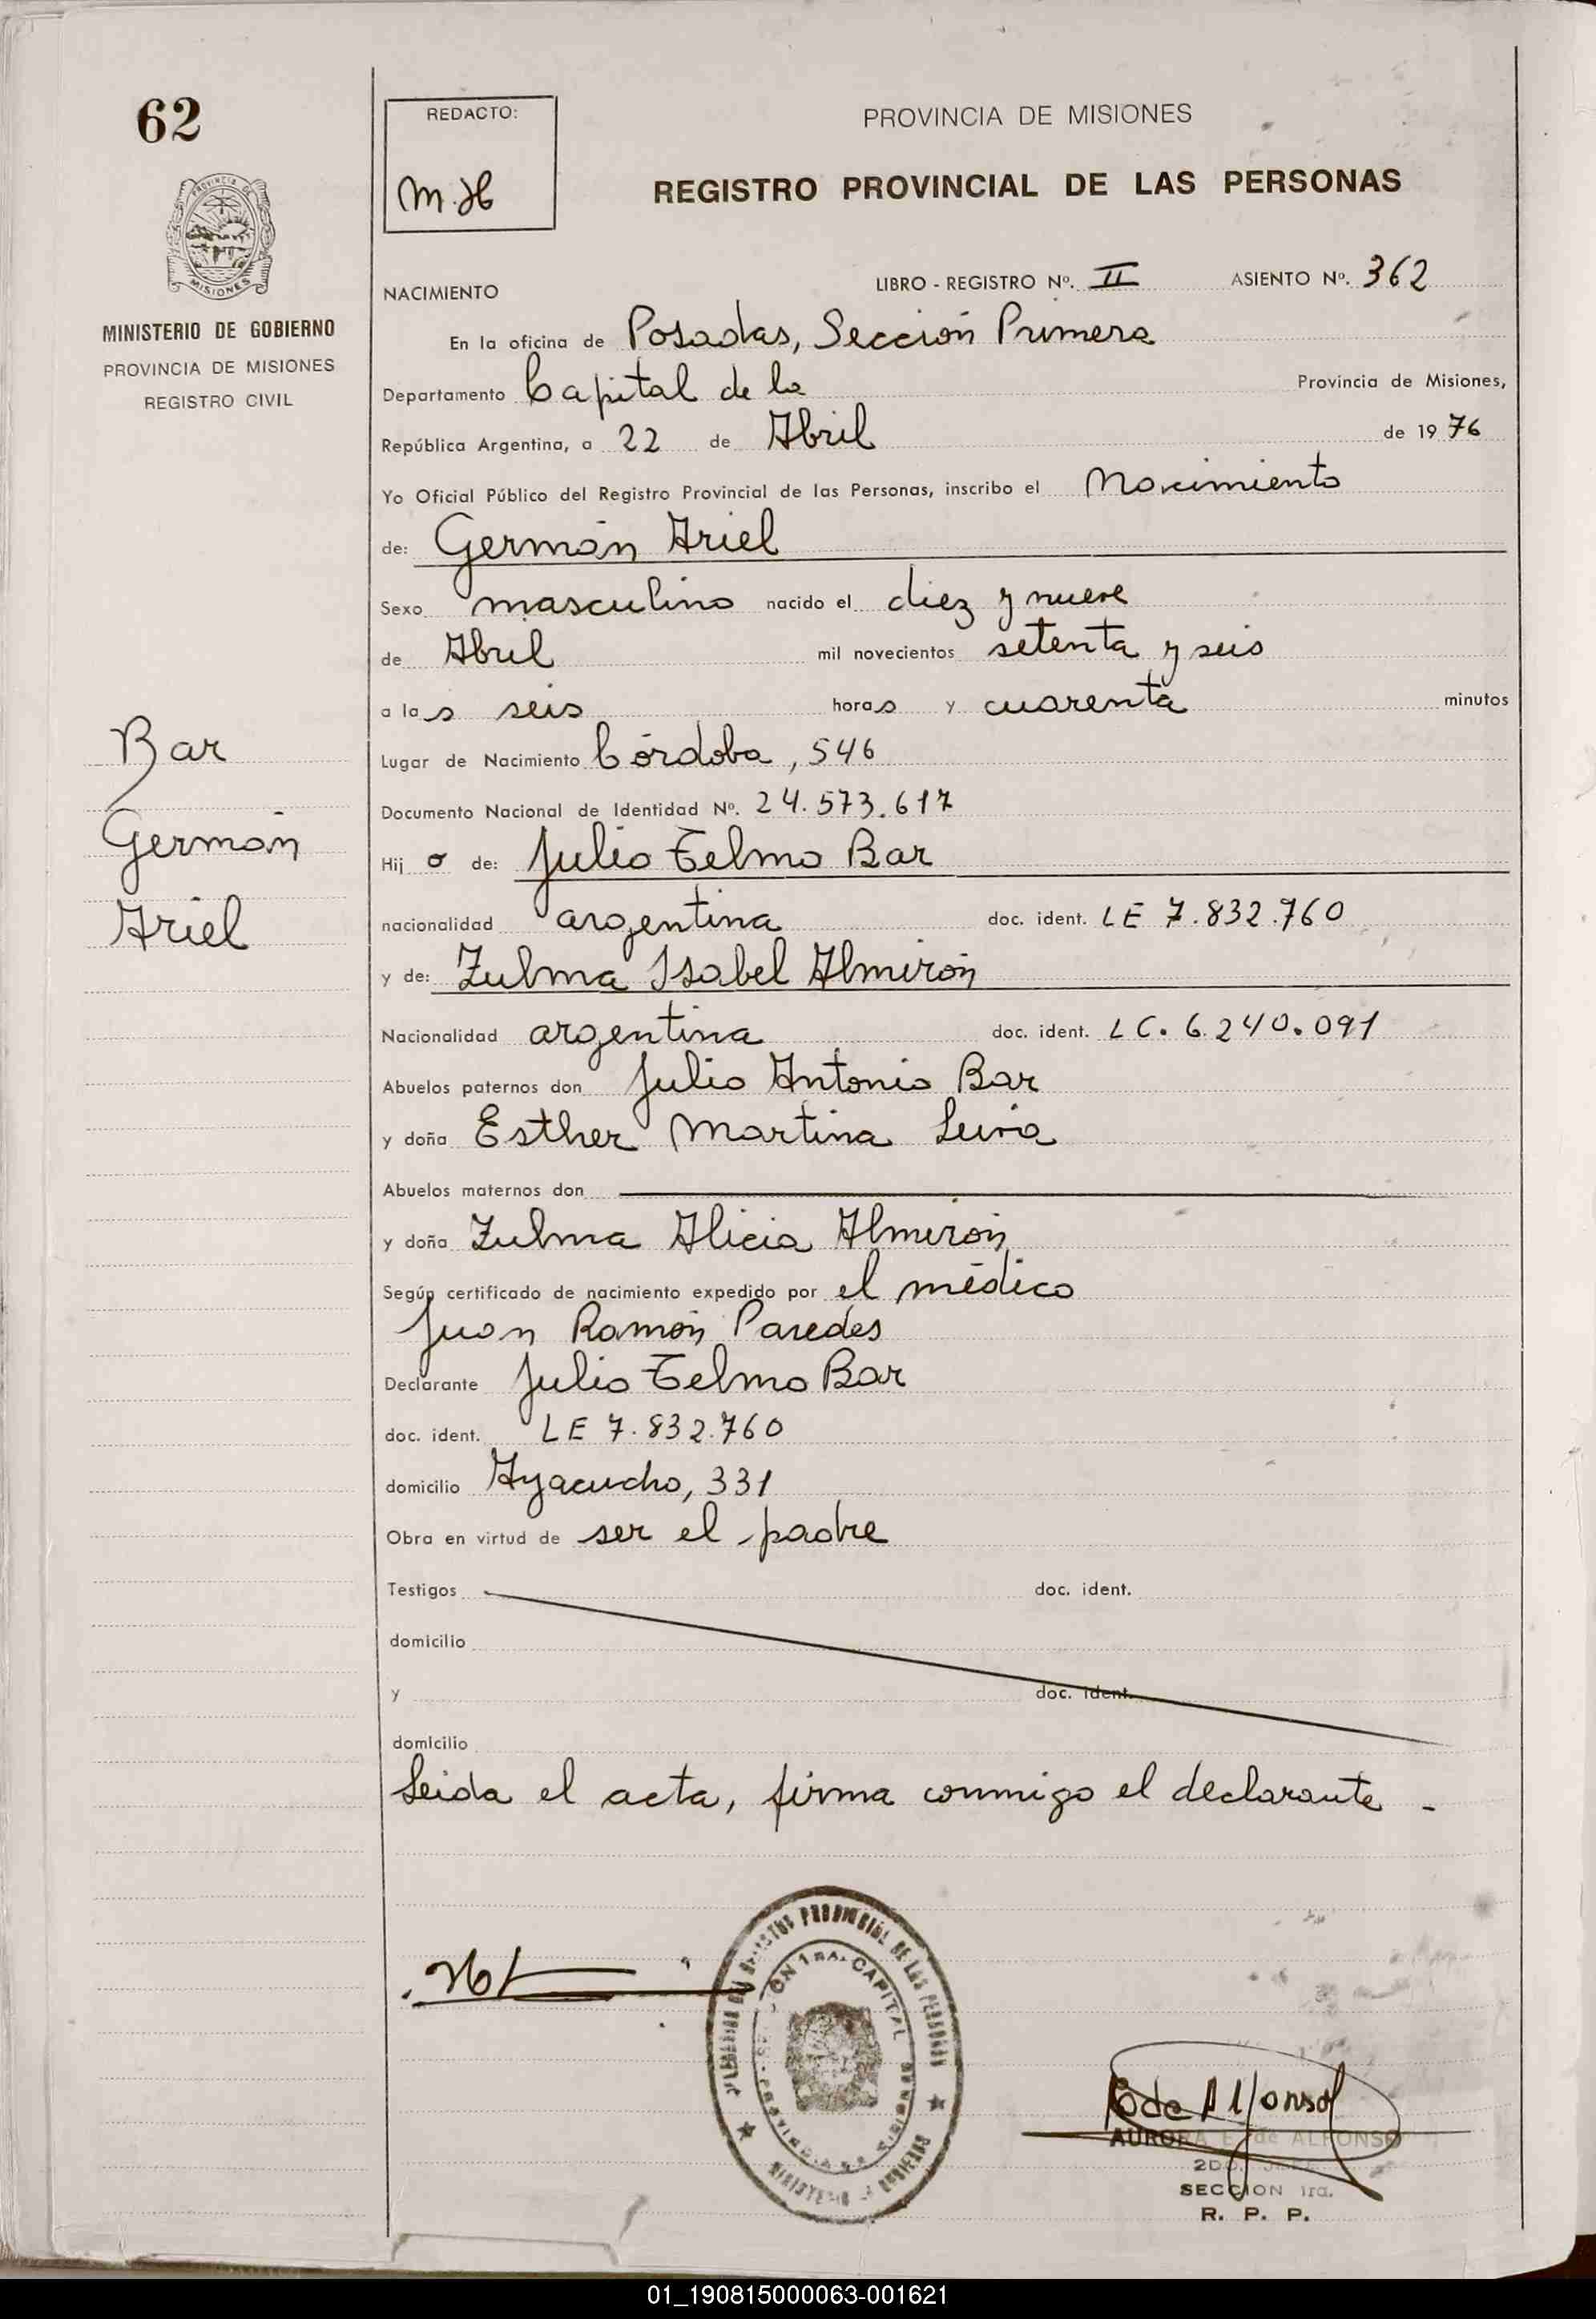 62
REDACTO:
M. H
PROVINCIA DE MISIONES
REGISTRO PROVINCIAL DE LAS PERSONAS
PROVINCIA DE
MISIONES
MINISTERIO DE GOBIERNO
PROVINCIA DE MISIONES
REGISTRO CIVIL
NACIMIENTO LIBRO - REGISTRO Nº. II ASIENTO Nº. 362
En la oficina de Posadas, Sección Primera
Departamento Capital de la Provincia de Misiones,
República Argentina, a 22 de Abril de 19 76
Yo Oficial Público del Registro Provincial de las Personas, inscribo el Nacimiento
de: Germán Ariel
Sexo masculino nacido el diez y nueve
de Abril mil novecientos setenta y seis
a las seis horas y cuarenta minutos
Lugar de Nacimiento Córdoba, 546
Documento Nacional de Identidad Nº. 24.573.617
Hijo de: Julio Telmo Bar
nacionalidad argentina doc. ident. LE 7.832.760
y de: Zulma Isabel Almirón
Nacionalidad argentina doc. ident. LC. 6.240.091
Abuelos paternos don Julio Antonio Bar
y doña Esther Martina Leiva
Abuelos maternos don
y doña Zulma Alicia Almirón
Según certificado de nacimiento expedido por el médico
Juan Ramón Paredes
Declarante Julio Telmo Bar
doc. ident. LE 7.832.760
domicilio Ayacucho, 331
Obra en virtud de ser el padre
Testigos doc. ident.
domicilio
y doc. ident.
domicilio
Leida el acta, firma conmigo el declarante -
Bar
Germán
Ariel
PROVINCIAL DE LAS PERSONAS
1RA. CAPITAL
MINISTERIO DE GOBIERNO
E de Alfonso
AURORA E. de ALFONSO
2DO. JEFE
SECCION 1ra.
R. P. P.
01_190815000063-001621